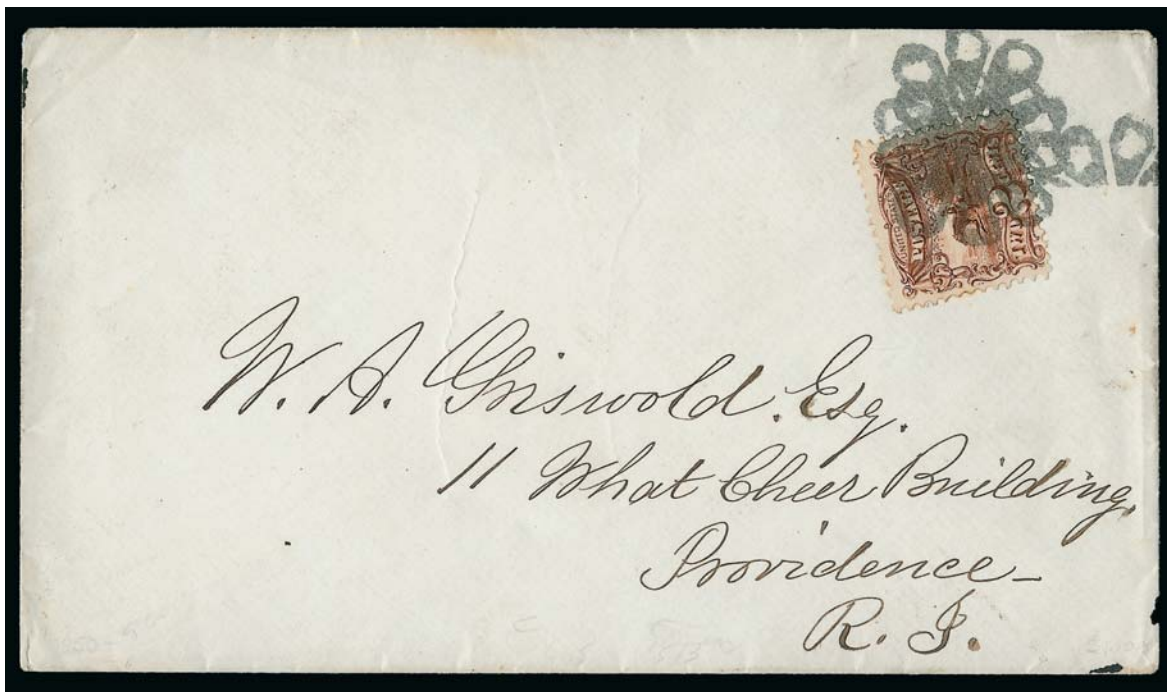 W. A. Griswold. Esq.
11 What Cheer Building,
Providence–
R. I.